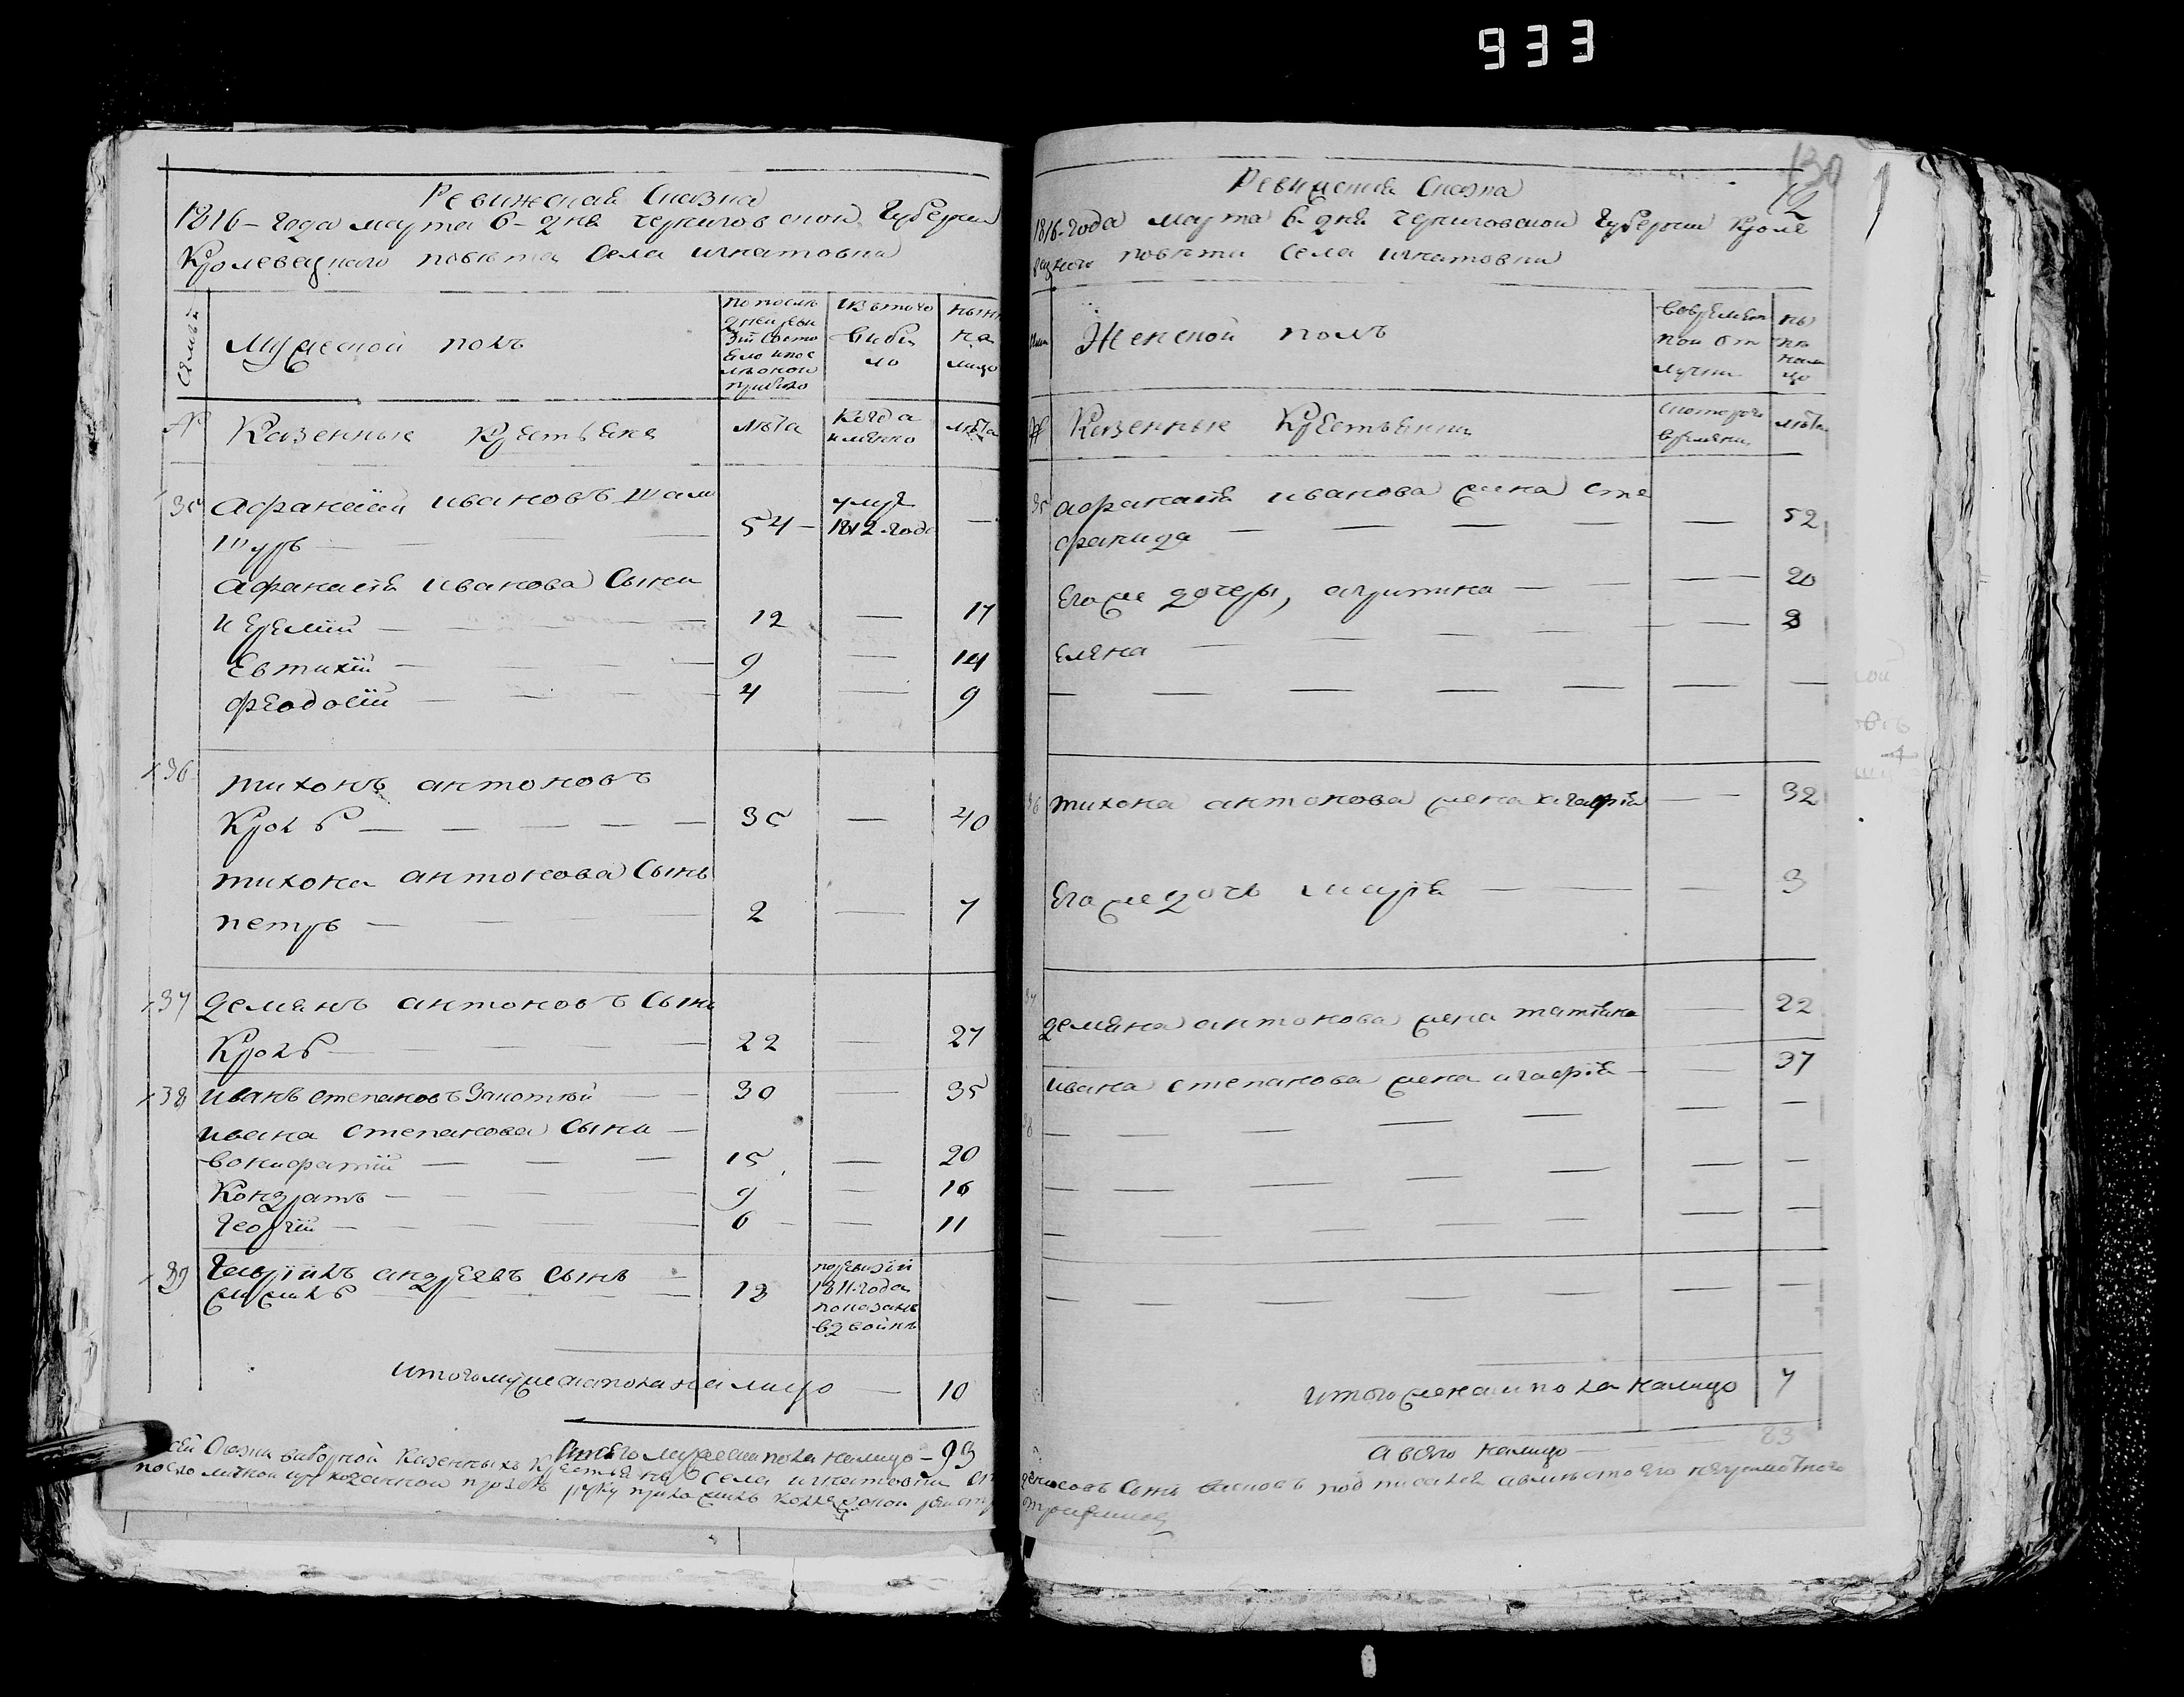 933
Ревижская Сказка
1816-года марта 6-дня Черниговской Губернии
Кролевецкого повета Села игнатовки
Семьи
Мужеской полъ
По послѣ
дней реви
зіи состо
яло и пос
лѣ оной
прибыло
Изъ того
выбы
ло
нынѣ
на
лицо
№
Казенные Крестьяне
лѣта
Когда
имянно
лѣта
35 афанасій ивановъ Шам
шуръ — 54 — умре 1812 года —
афанасія иванова Сыни
иеремій — 12 — 17
Евтихій — 9 — 14
феодосій — 4 — 9
36 тихонъ антоновъ
Кроль — 35 — 40
тихона антонова Сынъ
петръ — 2 — 7
37 демянъ антоновъ Сынъ
Кроль — 22 — 27
38 иванъ степановъ — 30 — 35
ивана степанова Сыни —
вонифатій — 15 — 20
Кондратъ — 9 — 16
Георгій — 6 — 11
39 Гавріилъ андреевъ Сынъ —
— 13 по ревизій
1811-года
показанъ
вдвойнѣ
итого мужеска пола на лицо — 10
Всего мужеска пола налицо — 93
сей Сказки выборной Казенныхъ Крестьянъ Села игнатовки
130
12
Ревижская Сказка
1816-года марта 6 дня Черниговской Губернии Кроле
вецкого повета Села игнатовки
Женской полъ
Вовремен
ной от
лучки
ны
нѣ
нали
цо
№
Казенные Крестьянки
Скоторого
времяни
лѣта
35 афанасія иванова жена Сте
фанида — — 52
Егоже дочеры, агрипина — — 20
Елена — — 3
36 тихона антонова жена агафія — 32
Егоже дочь марія — — 3
37 демяна антонова жена татіяна — 22
38 ивана степанова жена агафія — 37
итого женска пола налицо 7
а всего налицо — 83